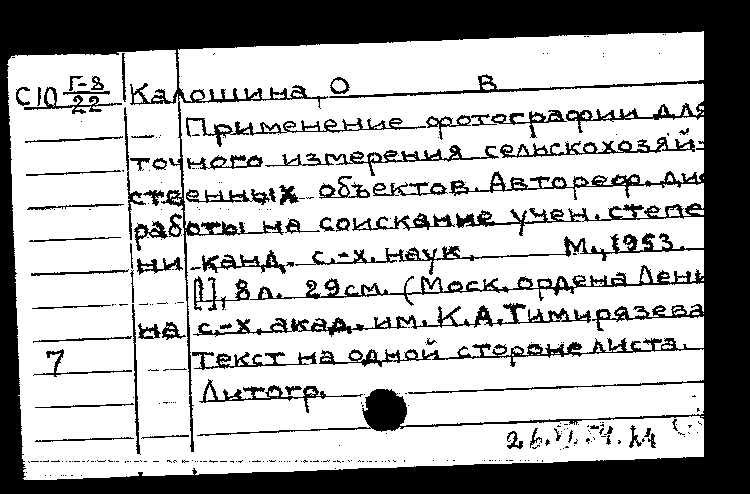 С10 Г-8/22 Калошина, О В
Применение фотографии для
точного измерения сельскохозяй-
ственных объектов. Автореф. дис
работы на соискание учен. степе
ни канд. с.-х. наук. М., 1953.
[1], 8 л. 29см. (Моск. ордена Лени
на с.-х. акад. им. К.А.Тимирязева
7 Текст на одной стороне листа.
Литогр.
26.VI.54.